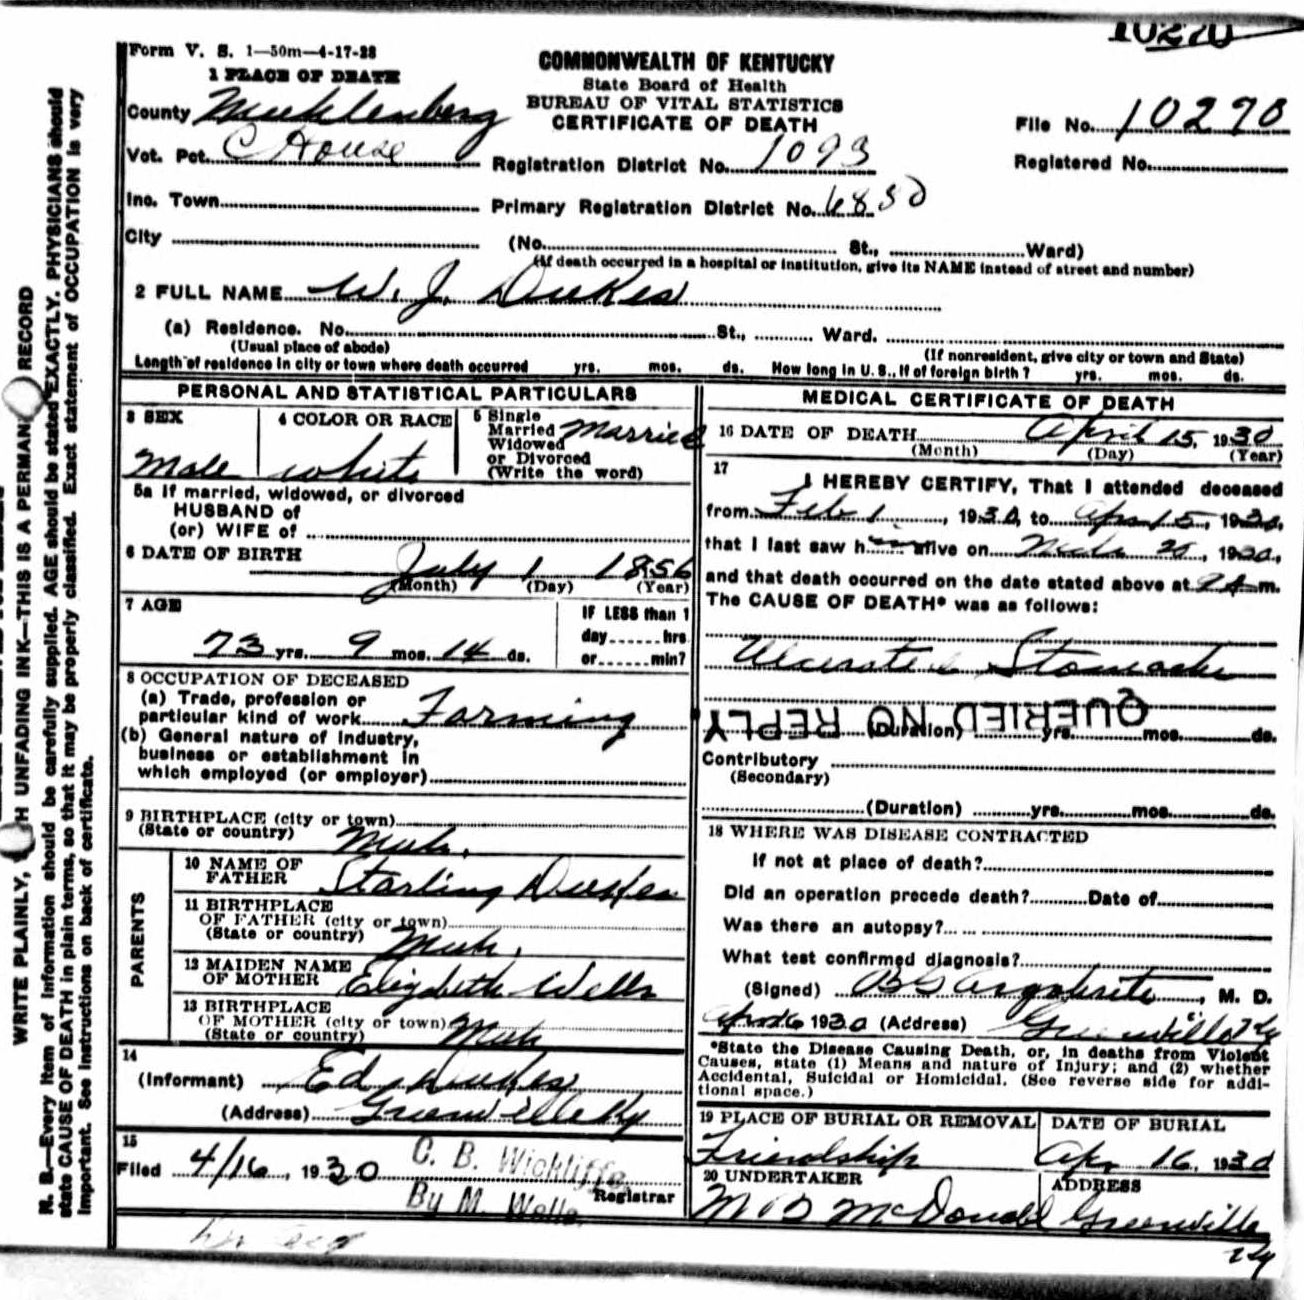 10270
Form V. S. 1—50m—4-17-28
1 PLACE OF DEATH
COMMONWEALTH OF KENTUCKY
State Board of Health
BUREAU OF VITAL STATISTICS
CERTIFICATE OF DEATH
County Muhlenberg
File No. 10270
Vot. Pct. C House
Registration District No. 1093
Registered No.
Inc. Town
Primary Registration District No. 6850
City (No. St., Ward)
(If death occurred in a hospital or institution, give its NAME instead of street and number)
2 FULL NAME W. J. Dukes
(a) Residence. No. St., Ward.
(Usual place of abode) (If nonresident, give city or town and State)
Length of residence in city or town where death occurred yrs. mos. ds. How long in U. S., if of foreign birth? yrs. mos. ds.
PERSONAL AND STATISTICAL PARTICULARS
3 SEX Male
4 COLOR OR RACE white
5 Single
Married
Widowed
or Divorced
(Write the word) Married
5a If married, widowed, or divorced
HUSBAND of
(or) WIFE of
6 DATE OF BIRTH July 1 1856
(Month) (Day) (Year)
7 AGE
73 yrs. 9 mos. 14 ds.
IF LESS than 1
day hrs
or min?
8 OCCUPATION OF DECEASED
(a) Trade, profession or
particular kind of work Farming
(b) General nature of industry,
business or establishment in
which employed (or employer)
9 BIRTHPLACE (city or town)
(State or country) Muh.
PARENTS
10 NAME OF
FATHER Starling Dukes
11 BIRTHPLACE
OF FATHER (city or town)
(State or country) Muh.
12 MAIDEN NAME
OF MOTHER Elizabeth Wells
13 BIRTHPLACE
OF MOTHER (city or town)
(State or country) Muh
14
(Informant) Ed Dukes
(Address) Greenville Ky
15
Filed 4/16, 1930 C. B. Wickliffe,
Registrar
By M. Wells.
MEDICAL CERTIFICATE OF DEATH
16 DATE OF DEATH April 15, 1930
(Month) (Day) (Year)
17
I HEREBY CERTIFY, That I attended deceased
from Feb 1, 1930, to Apr 15, 1930,
that I last saw h alive on 20, 1930,
and that death occurred on the date stated above at m.
The CAUSE OF DEATH* was as follows:
Ulcerated Stomach
QUERIED NO REPLY
(Duration) yrs. mos. ds.
Contributory
(Secondary)
(Duration) yrs. mos. ds.
18 WHERE WAS DISEASE CONTRACTED
If not at place of death?
Did an operation precede death? Date of
Was there an autopsy?
What test confirmed diagnosis?
(Signed) , M. D.
Apr 16 1930 (Address) Greenville Ky
*State the Disease Causing Death, or, in deaths from Violent
Causes, state (1) Means and nature of Injury; and (2) whether
Accidental, Suicidal or Homicidal. (See reverse side for addi-
tional space.)
19 PLACE OF BURIAL OR REMOVAL
Friendship
DATE OF BURIAL
Apr 16, 1930
20 UNDERTAKER
McDonald
ADDRESS
Greenville
Ky
WRITE PLAINLY, WITH UNFADING INK—THIS IS A PERMANENT RECORD
N. B.—Every item of information should be carefully supplied. AGE should be stated EXACTLY. PHYSICIANS should
state CAUSE OF DEATH in plain terms, so that it may be properly classified. Exact statement of OCCUPATION is very
important. See instructions on back of certificate.